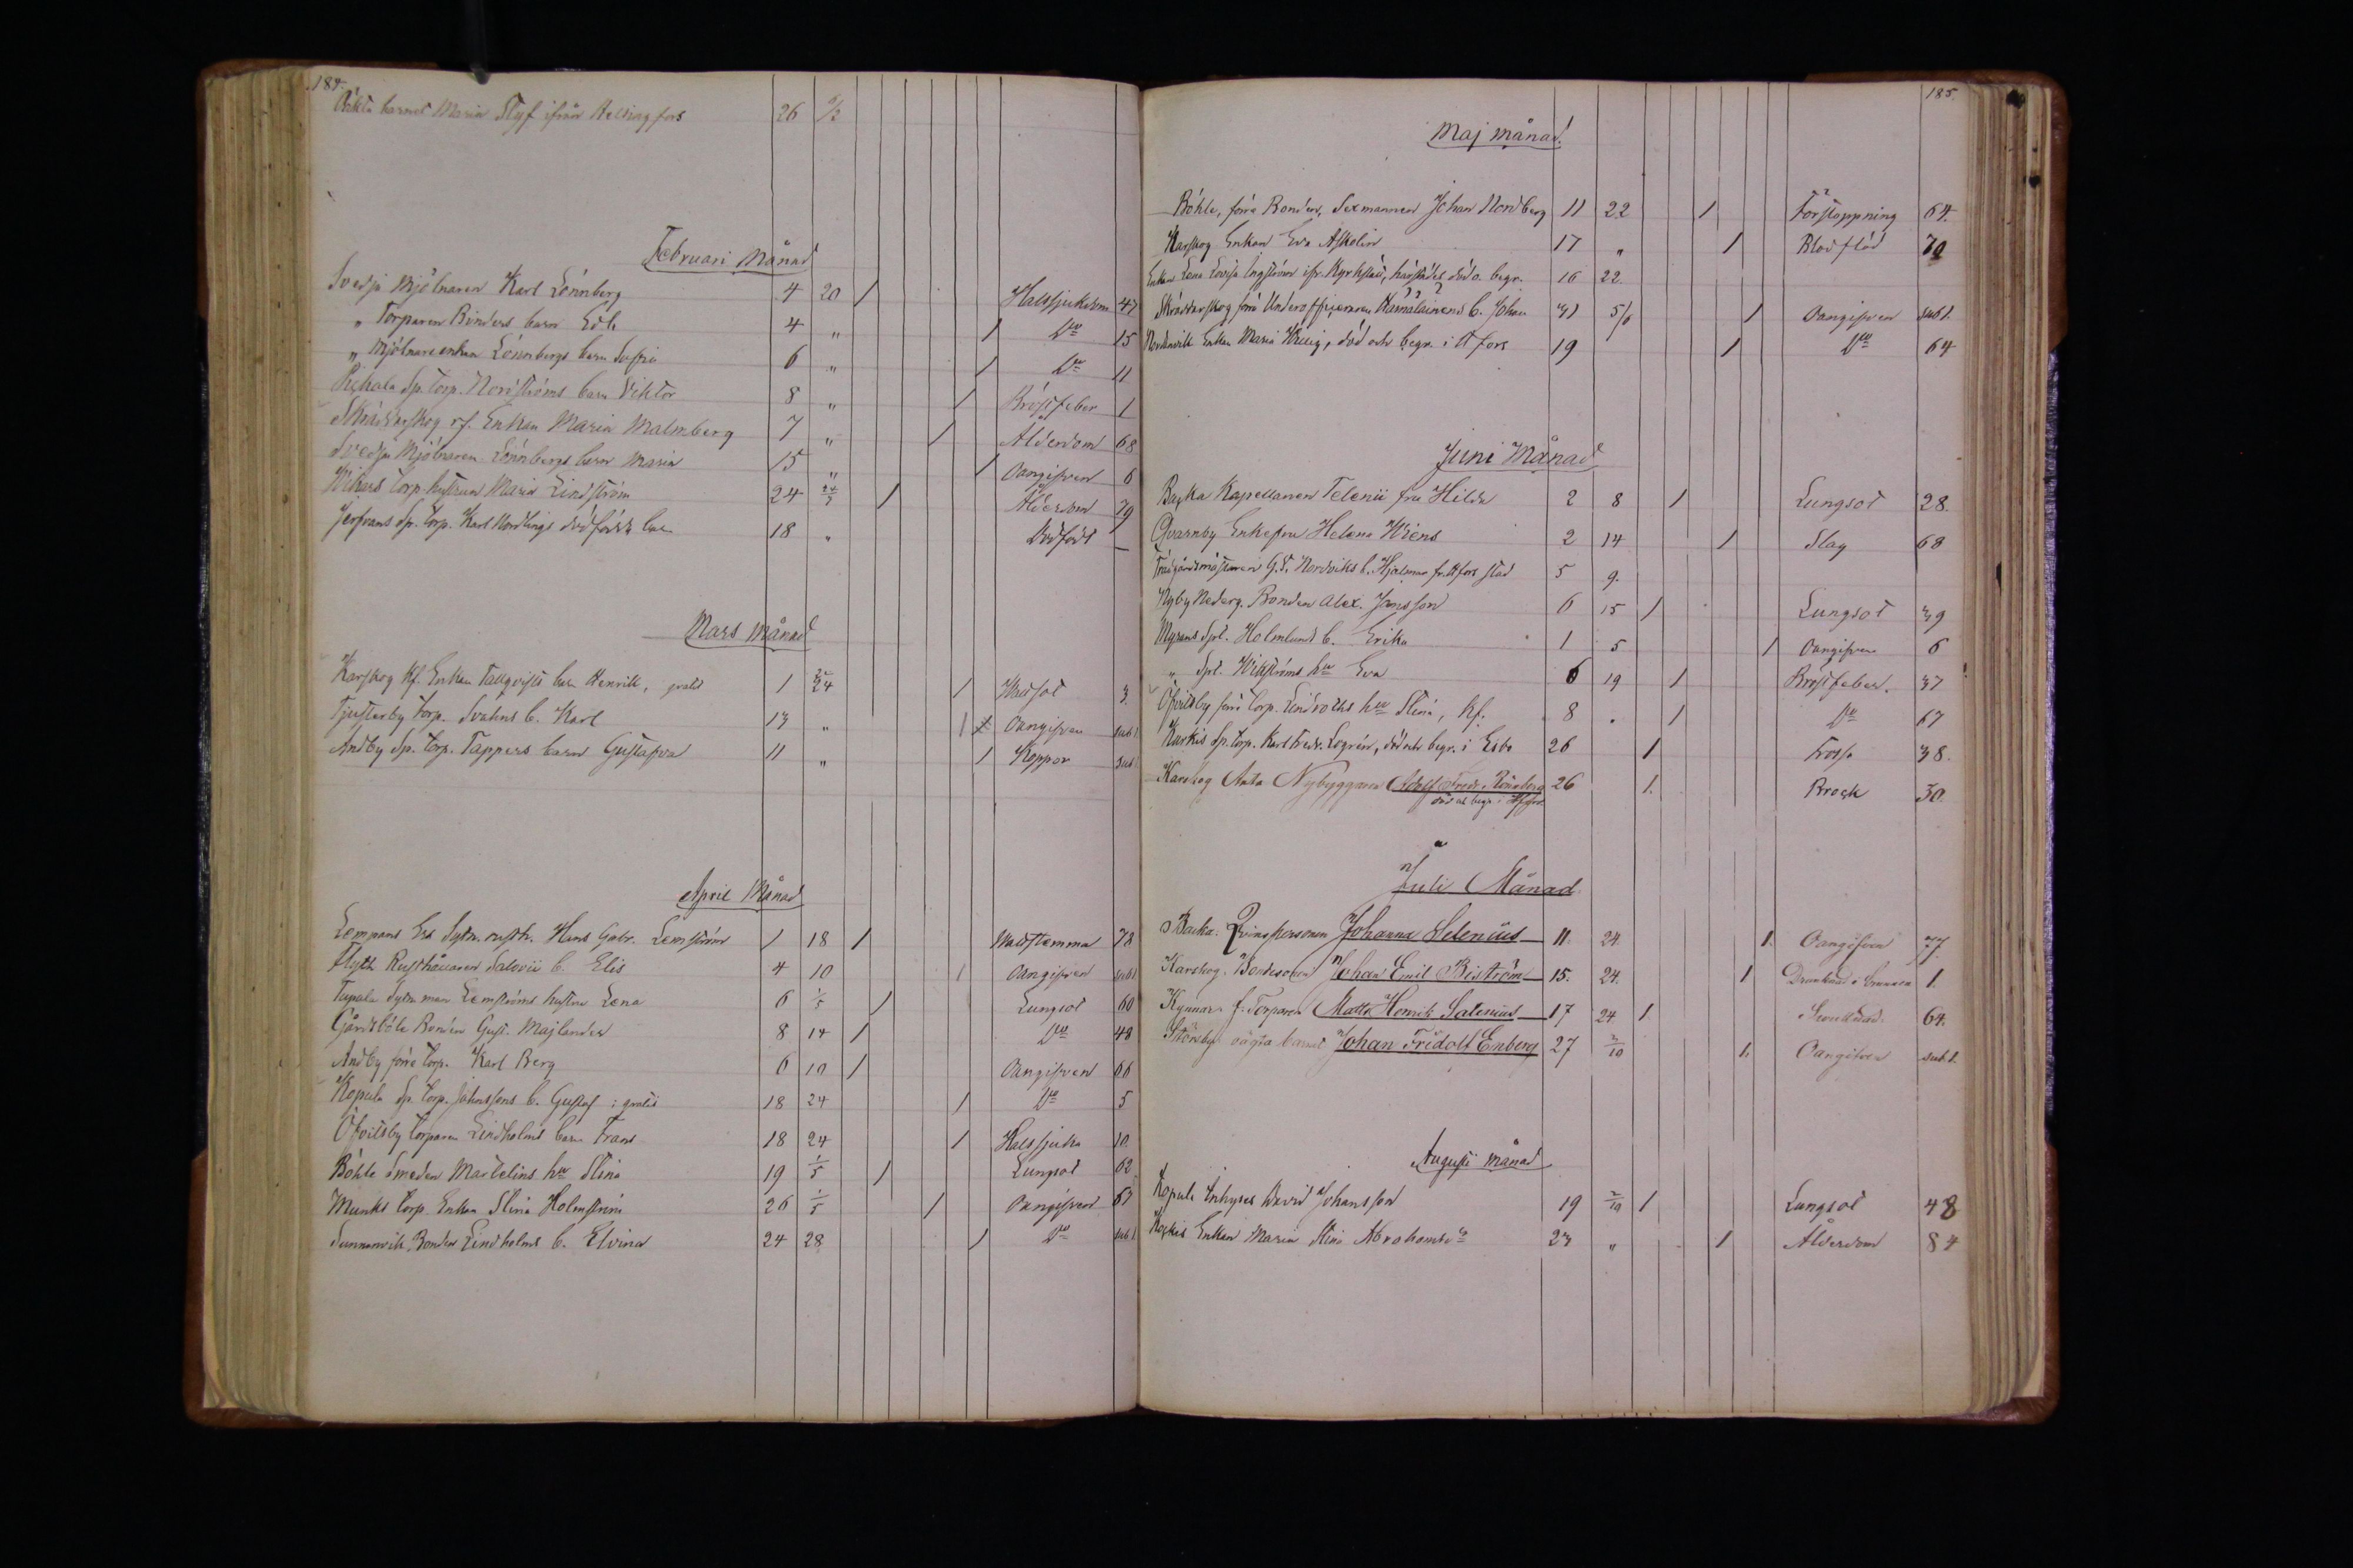 184.
Oäkta barnet Maria Styf ifrån Helsingfors 26 6/2
Februari Månad
Svedja Mjölnaren Karl Lönnberg 4 20 / Halssjukdom 47
„ Torparen Binders barn Edla 4 „ / Do 15
„ Mjölnareenkan Lönnbergs barn Sofia 6 „ / Do 11
Sp. Torp. Nordströms barn Viktor 8 „ / Bröstfeber 1
Skräddarskog rf. Enkan Maria Malmberg 7 „ / Ålderdom 68
Svedja Mjölnaren Lönnbergs barn Maria 15 „ / Oangifven 6
Wikars Torp. hustrun Maria Lindström 24 / Ålderdom 79
Sp. Torp. Karl Nordlings dödfödda barn 18 „ Dödfödt —
Mars månad
Karskog Kf. Enkan Tallqvists barn Henrik, gratis 1 24 / 3
Tjusterby Torp. Svahns b. Karl 13 „ / Oangifven
Andby Sp. Torp. Tappers barn Gustafva 11 „ / Koppor
April Månad
Lempans Hans Gabr. Lemström 1 18 / 78
Flyth Rusthållaren Salovii b. Elis 4 10 / Oangifven
Tupala Lemströms hustru Lena 6 1/5 / Lungsot 60
Gårdsböle Bonden Gust. Majlander 8 14 / Do 48
Andby förra Torp. Karl Berg 6 10 / Oangifven 66
Kopula Sp. Torp. Johanssons b. Gustaf : gratis 18 24 / Do 5
Öfvitsby Torparen Lindholms barn Frans 18 24 / Halssjuka 10.
Böhle Smeden Martelins hu Stina 19 1/5 / Lungsot 62
Munks Torp. Enkan Stina Holmström 26 1/5 / Oangifven 63
Sunnanvik, Bonden Lindholms b. Elvina 24 28 / Do
185.
Maj månad.
Böhle, förra Bonden, Sexmannen Johan Nordberg 11 22 / Förstoppning 64.
Karskog Enkan Eva Askolin 17 „ / Blodflöd 70
Enkan Lena Lovisa Engström ifr. Kyrkslätt, härstädes död o. begr. 16 22.
Skräddarskog förra Underofficeraren Hämäläinens b. Johan 31 5/6 / Oangifven
Nordanvik Enkan Maria död och begr. i Hfors 19 / Do 64
Juni Månad
Backa Kapellanen Telenii fru Hilda 2 8 / Lungsot 28.
Qvarnby Enkefru Helena Wiens 2 14 / Slag 68
Trädgårdsmästaren G. L. Nordviks b. Hjalmar fr. Hfors stad 5 9.
Nyby Nederg. Bonden Alex. Jansson 6 15 / Lungsot 39
Myrans Spt. Holmlunds b. Erika 1 5 / Oangifven 6
„ Spt. Wikströms hu Eva 6 19 / Bröstfeber. 37
Öfvitsby förra Torp. Lindroths hu Stina, Kf. 8 „ / Do 67
Kurkis Sp. Torp. Karl Fredr. Logrén, död och begr. i Esbo 26 / Frossa 38.
Karskog Anta Nybyggaren Adolf Fredr. Rönnberg 26 /. Brock 30.
död och begr. i Hfors
Juli Månad.
Backa. Johanna Selenius 11. 24. /. Oangifven 77.
Karskog. Bondesonen Johan Emil Biström 15. 24. / Drunknad i brunnen 1.
Kynnars f. Torparen Matts Henrik Salenius 17 24 /. 64.
Störsby oägta barnet Johan Fridolf Enberg 27 /10 /. Oangifven
Augusti månad
Kopula Inhyses David Johansson 19 2/10 / Lungsot 48
Enkan Maria Stina Abrahamsdr 23 „ / Ålderdom 84